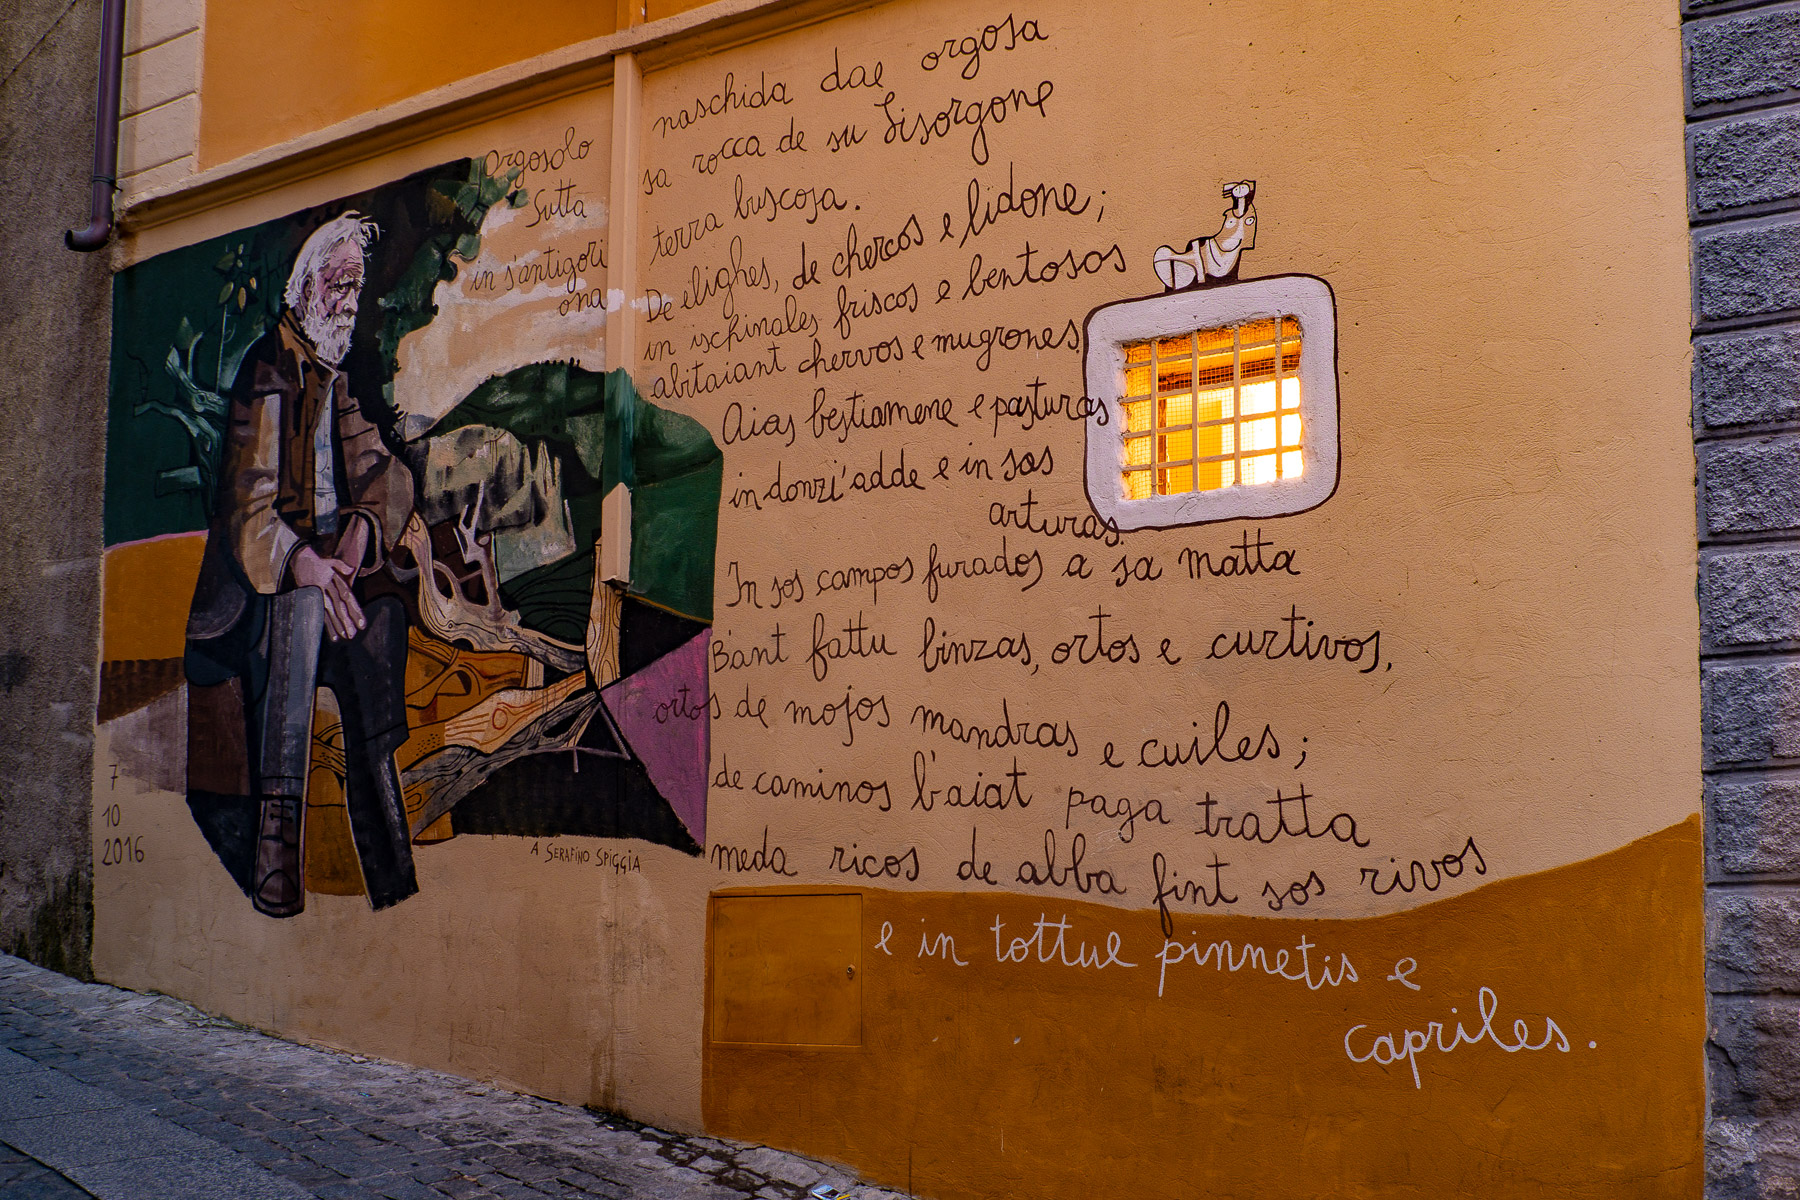 Orgosolo
Sutta
in s'antigori
ona
naschida dae orgosa
sa rocca de su Lisorgone
terra buscosa.
De elighes, de chercos e lidone;
in ischinales friscos e bentosos
abitaiant chervos e mugrones.
Aias bestiamene e pasturas
in donzi'adde e in sas
arturas.
In sos campos furados a sa matta
B'ant fattu binzas, ortos e curtivos,
ortos de mojos mandras e cuiles;
de caminos b'aiat paga tratta
meda ricos de abba fint sos rivos
e in tottue pinnetis e
capriles.
7
10
2016
A SERAFINO SPIGGIA